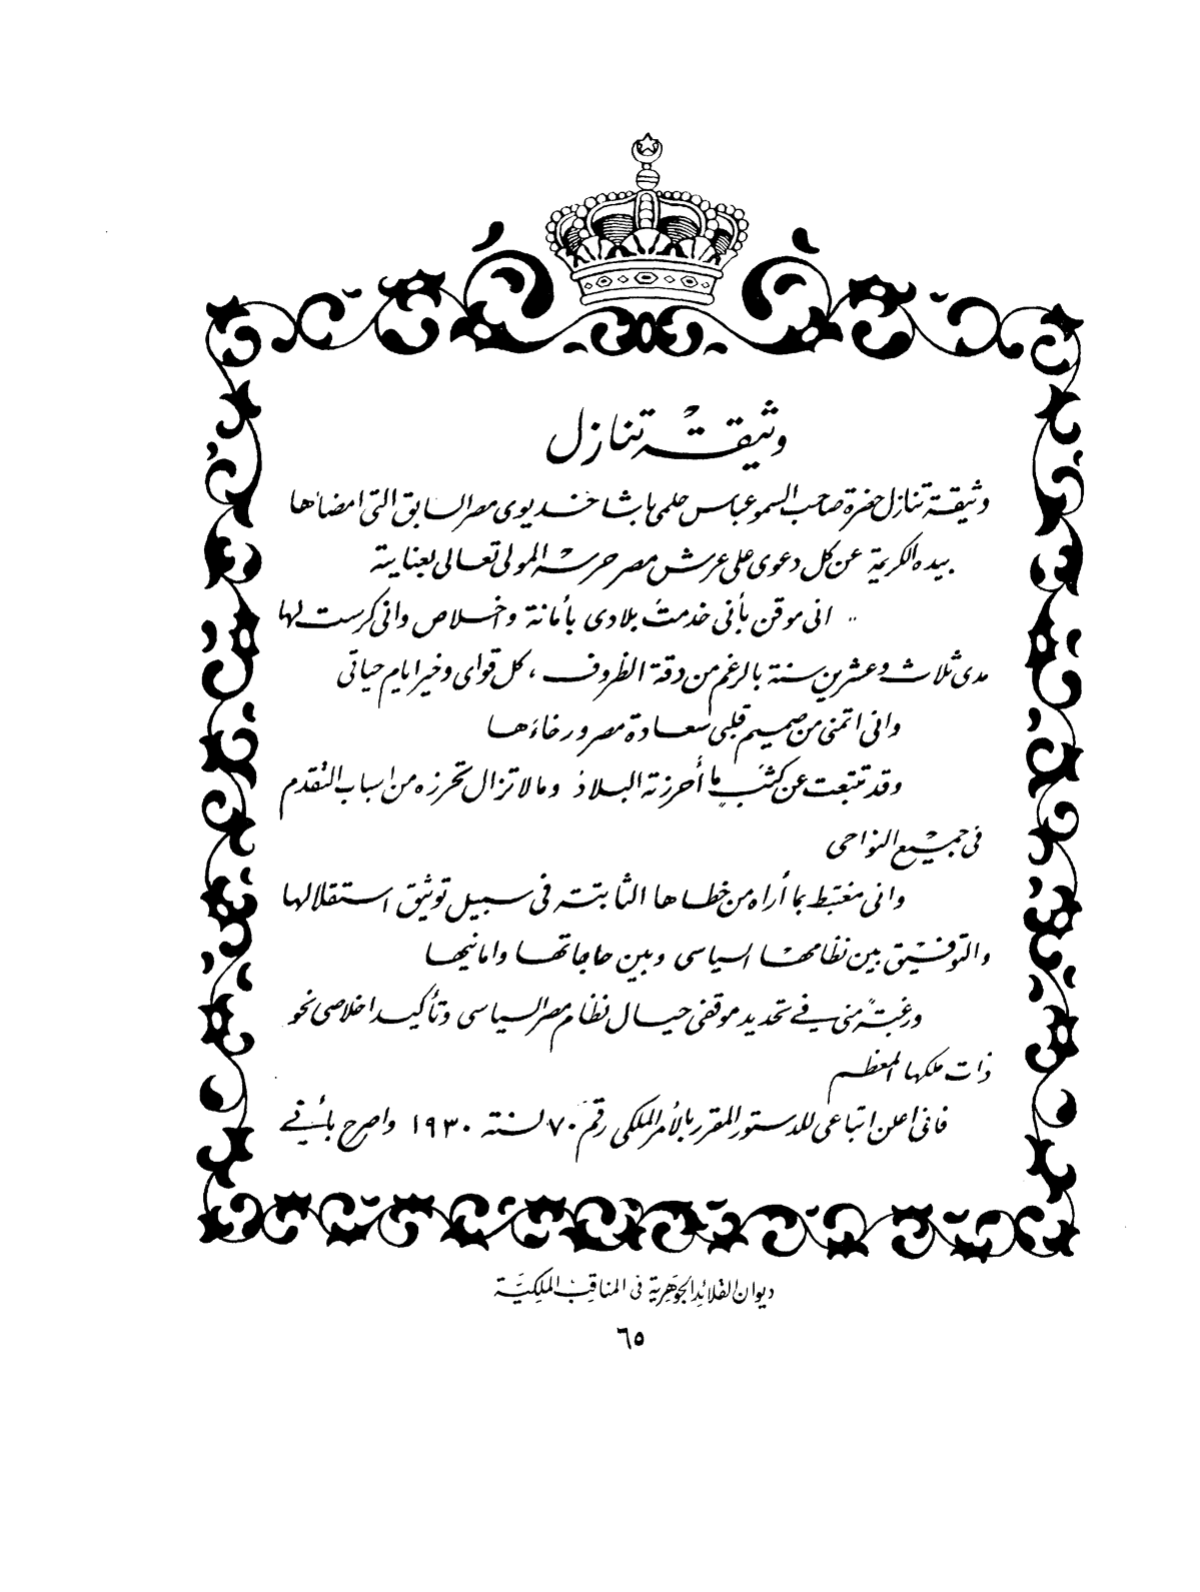 وثيقة تنازل
وثيقة تنازل حضرة صاحب السمو عباس حلمى باشا خديوى مصر السابق التى امضاها
بيده الكريمة عن كل دعوى على عرش مصر حرسه المولى تعالى بعنايته
" انى موقن بأنى خدمت بلادى بأمانة وخلاص وانى كرست لها
مدى ثلاث وعشرين سنة بالرغم من دقة الظروف ، كل قواى وخير ايام حياتى
وانى اتمنى من صميم قلبى سعادة مصر ورخاءها
وقد تتبعت عن كثب ما أحرزته البلاد وما لا تزال تحرزه من اسباب التقدم
فى جميع النواحى
وانى مغتبط بما أراه من خطاها الثابتة فى سبيل توثيق استقلالها
والتوفيق بين نظامها السياسى وبين حاجاتها وامانيها
ورغبة منى في تحديد موقفى حيال نظام مصر السياسى وتأكيد اخلاصى نحو
ذات ملكها المعظم
فانى اعلن اتباعى للدستور المقرر بالأمر الملكى رقم ٧٠ لسنة ١٩٣٠ واصرح بأنى في
ديوان القلائد الجوهرية فى المناقب الملكية
٦٥